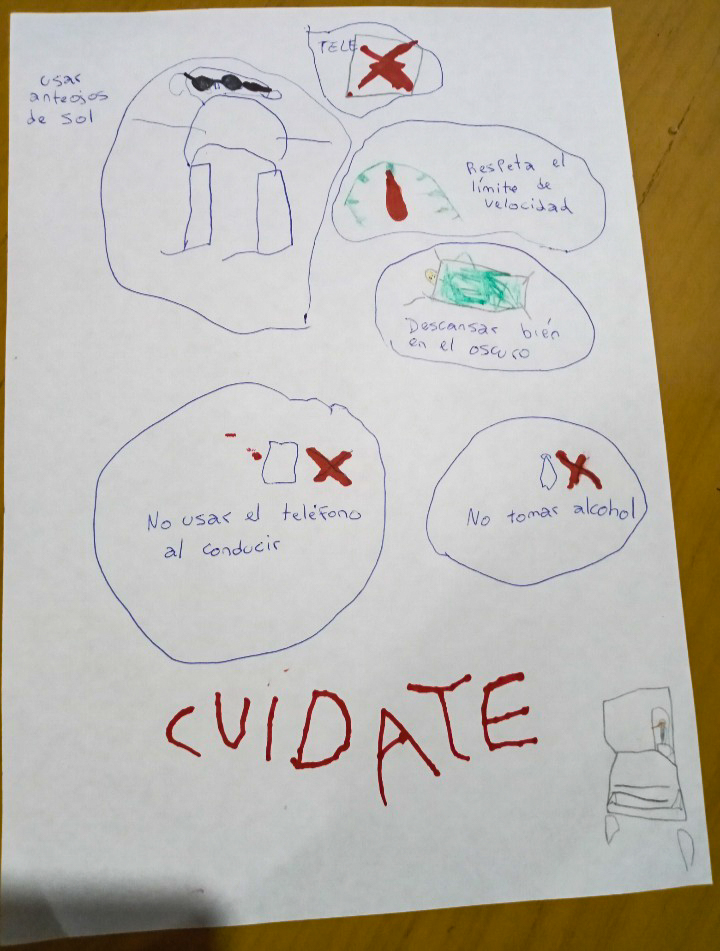 TELE
usar
anteojos
de sol
Respeta el
límite de
velocidad
Descansar bién
en el oscuro
No usar el teléfono
al conducir
No tomar alcohol
CUIDATE